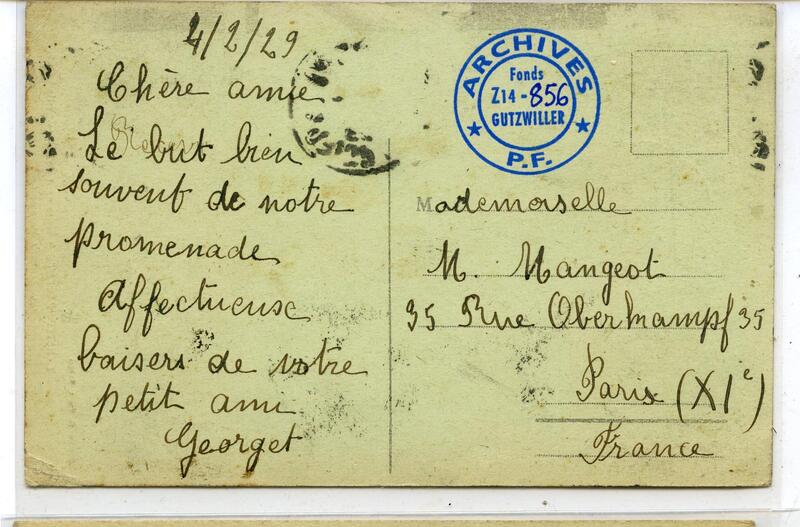 4/2/29
Chère amie
Le but bien
souvent de notre
promenade
Affectueuse
baisers de votre
petit ami
Georget
ARCHIVES
Fonds
Z14-856
GUTZWILLER
P.F.
Mademoiselle
M. Mangeot
35 Rue Oberkampf 35
Paris (XIe)
France